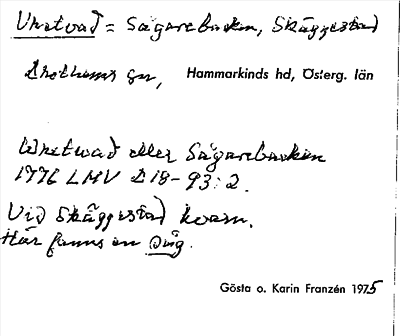 Uhetvad = Sågarebacken, Skäggestad
Drothems sn, Hammarkinds hd, Österg. län
Uhetwad eller Sågarebacken
1776 LMV D 18-93:2.
Vid Skäggestad kvarn.
Här fanns en såg.
Gösta o. Karin Franzén 1975